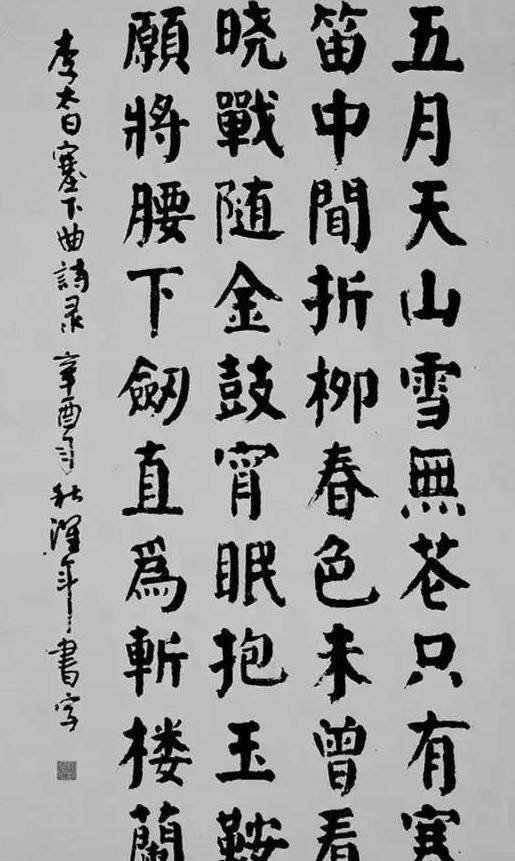 五月天山雪無花只有寒
笛中聞折柳春色未曾看
晓戰随金鼓宵眠抱玉鞍
願將腰下劒直爲斬楼蘭
李太白塞下曲詩录 辛酉秋年書